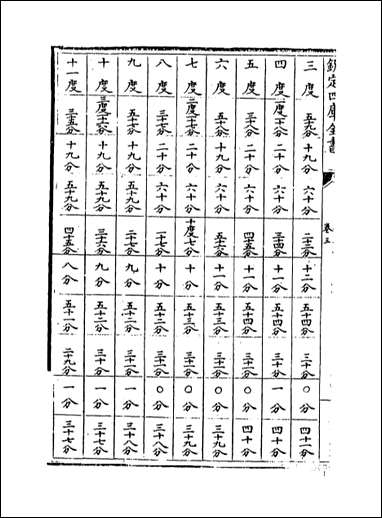 欽定四庫全書
三度 五十九分 十九分 六十分 二十三分 十一分 五十四分 三十分 〇分 四十一分
四度 一度十八分 二十分 六十分 三十四分 十一分 五十四分 三十分 一分 四十分
五度 三十八分 二十分 六十分 四十五分 十一分 五十四分 三十一分 〇分 四十分
六度 五十八分 十九分 六十分 五十六分 十一分 五十三分 三十一分 〇分 三十九分
七度 二度十七分 二十分 六十分 十度七分 十分 五十三分 三十一分 〇分 三十九分
八度 三十七分 二十分 六十分 十七分 十分 五十二分 三十一分 〇分 三十八分
九度 五十七分 十九分 五十九分 二十七分 九分 五十二分 三十一分 一分 三十八分
十度 三度十六分 十九分 五十九分 三十六分 九分 五十二分 三十分 一分 三十七分
十一度 三十五分 十九分 五十九分 四十五分 八分 五十一分 二十九分 一分 三十七分